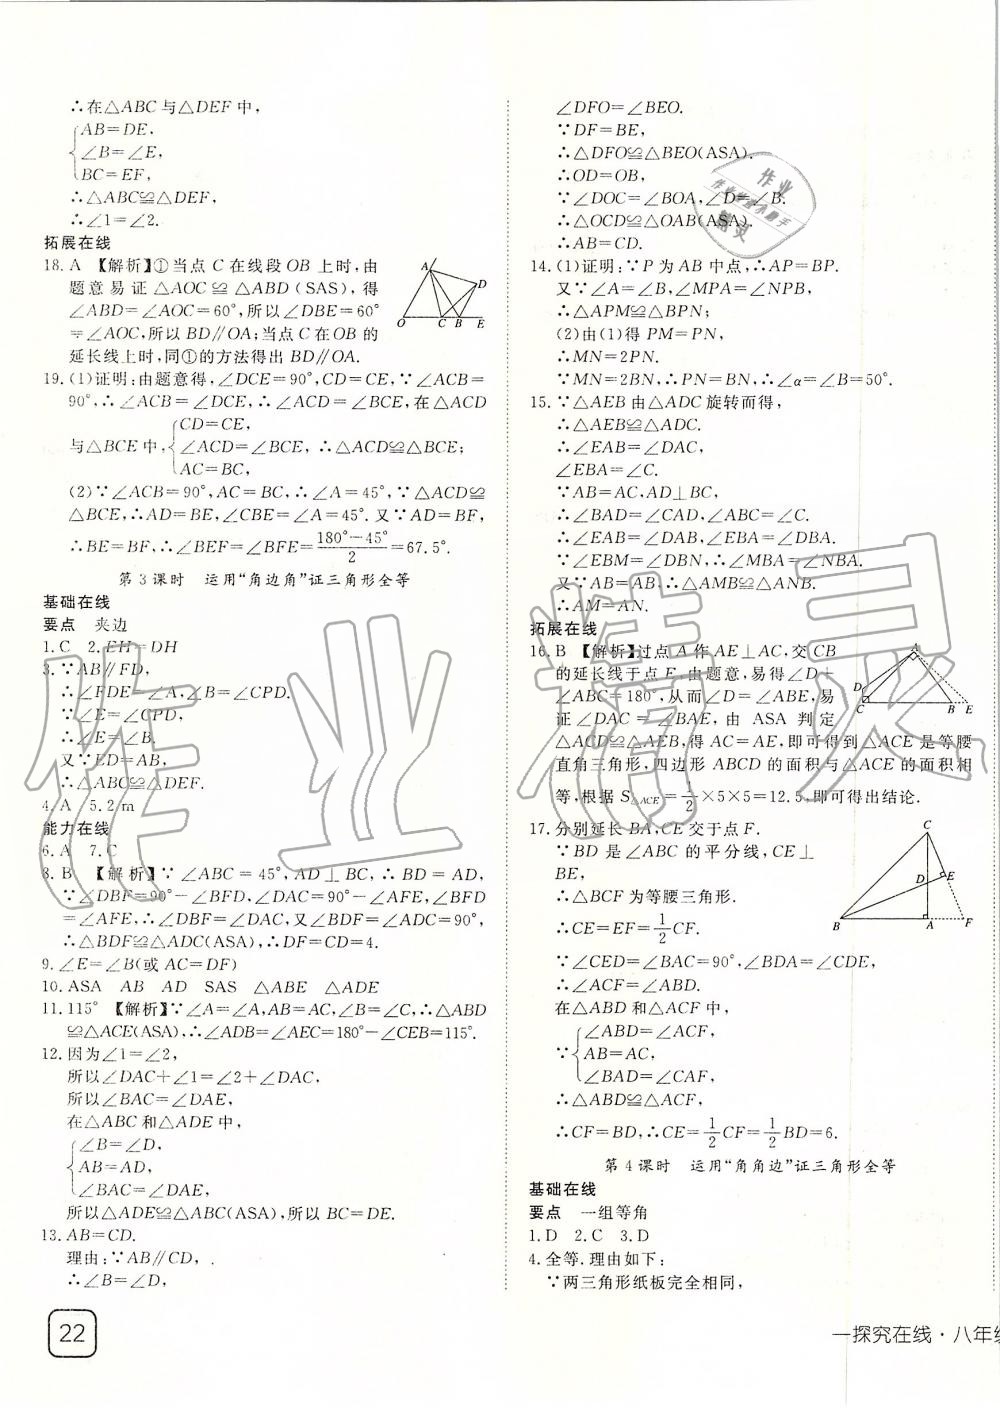 ∴在△ABC与△DEF中,
AB=DE,
∠B=∠E,
BC=EF,
∴△ABC≌△DEF,
∴∠1=∠2.
拓展在线
18. A 【解析】①当点C在线段OB上时,由
题意易证△AOC≌△ABD(SAS),得
∠ABD=∠AOC=60°,所以∠DBE=60°
=∠AOC,所以BD∥OA;当点C在OB的
延长线上时,同①的方法得出BD∥OA.
A
D
O C B E
19. (1)证明:由题意得,∠DCE=90°,CD=CE,∵∠ACB=
90°,∴∠ACB=∠DCE,∴∠ACD=∠BCE,在△ACD
与△BCE中,
CD=CE,
∠ACD=∠BCE,
AC=BC,
∴△ACD≌△BCE;
(2)∵∠ACB=90°,AC=BC,∴∠A=45°,∵△ACD≌
△BCE,∴AD=BE,∠CBE=∠A=45°.又∵AD=BF,
∴BE=BF,∴∠BEF=∠BFE=(180°-45°)/2=67.5°.
第3课时 运用“角边角”证三角形全等
基础在线
要点 夹边
1. C 2. EH=DH
3. ∵AB∥FD,
∴∠FDE=∠A,∠B=∠CPD.
∵∠E=∠CPD,
∴∠E=∠B.
又∵ED=AB,
∴△ABC≌△DEF.
4. A 5. 2 m
能力在线
6. A 7. C
8. B 【解析】∵∠ABC=45°,AD⊥BC,∴BD=AD,
∵∠DBF=90°-∠BFD,∠DAC=90°-∠AFE,∠BFD
=∠AFE,∴∠DBF=∠DAC,又∠BDF=∠ADC=90°,
∴△BDF≌△ADC(ASA),∴DF=CD=4.
9. ∠E=∠B(或AC=DF)
10. ASA AB AD SAS △ABE △ADE
11. 115° 【解析】∵∠A=∠A,AB=AC,∠B=∠C,∴△ABD
≌△ACE(ASA),∴∠ADB=∠AEC=180°-∠CEB=115°.
12. 因为∠1=∠2,
所以∠DAC+∠1=∠2+∠DAC,
所以∠BAC=∠DAE,
在△ABC和△ADE中,
∠B=∠D,
AB=AD,
∠BAC=∠DAE,
所以△ADE≌△ABC(ASA),所以BC=DE.
13. AB=CD.
理由:∵AB∥CD,
∴∠B=∠D,
22
∠DFO=∠BEO.
∵DF=BE,
∴△DFO≌△BEO(ASA).
∴OD=OB,
∵∠DOC=∠BOA,∠D=∠B.
∴△OCD≌△OAB(ASA),
∴AB=CD.
14. (1)证明:∵P为AB中点,∴AP=BP.
又∵∠A=∠B,∠MPA=∠NPB,
∴△APM≌△BPN;
(2)由(1)得PM=PN,
∴MN=2PN.
∵MN=2BN,∴PN=BN,∴∠α=∠B=50°.
15. ∵△AEB由△ADC旋转而得,
∴△AEB≌△ADC.
∴∠EAB=∠DAC,
∠EBA=∠C.
∵AB=AC,AD⊥BC,
∴∠BAD=∠CAD,∠ABC=∠C.
∴∠EAB=∠DAB,∠EBA=∠DBA.
∵∠EBM=∠DBN,∴∠MBA=∠NBA.
又∵AB=AB,∴△AMB≌△ANB.
∴AM=AN.
拓展在线
16. B 【解析】过点A作AE⊥AC,交CB
的延长线于点E,由题意,易得∠D+
∠ABC=180°,从而∠D=∠ABE,易
证∠DAC=∠BAE,由ASA判定
△ACD≌△AEB,得AC=AE,即可得到△ACE是等腰
直角三角形,四边形ABCD的面积与△ACE的面积相
等,根据S△ACE=1/2×5×5=12.5,即可得出结论.
A
D
C B E
17. 分别延长BA,CE交于点F.
∵BD是∠ABC的平分线,CE⊥
BE,
∴△BCF为等腰三角形.
∴CE=EF=1/2CF.
∵∠CED=∠BAC=90°,∠BDA=∠CDE,
∴∠ABD=∠ACF.
在△ABD和△ACF中,
∵
∠ABD=∠ACF,
AB=AC,
∠BAD=∠CAF,
∴△ABD≌△ACF,
∴CF=BD,∴CE=1/2CF=1/2BD=6.
C
D E
B A F
第4课时 运用“角角边”证三角形全等
基础在线
要点 一组等角
1. D 2. C 3. D
4. 全等.理由如下:
∵两三角形纸板完全相同,
一探究在线·八年级
作业精灵